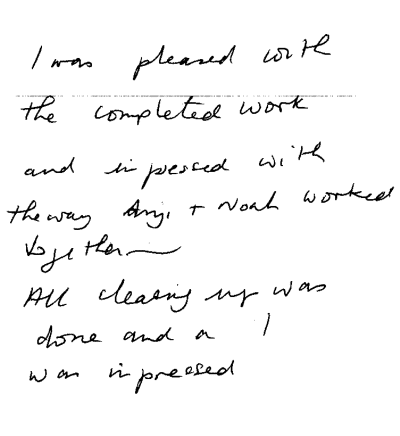 I was pleased with
the completed work
and inpessed with
the way Angi + Noah worked
together
All clearing up was
done and a I
was inpressed